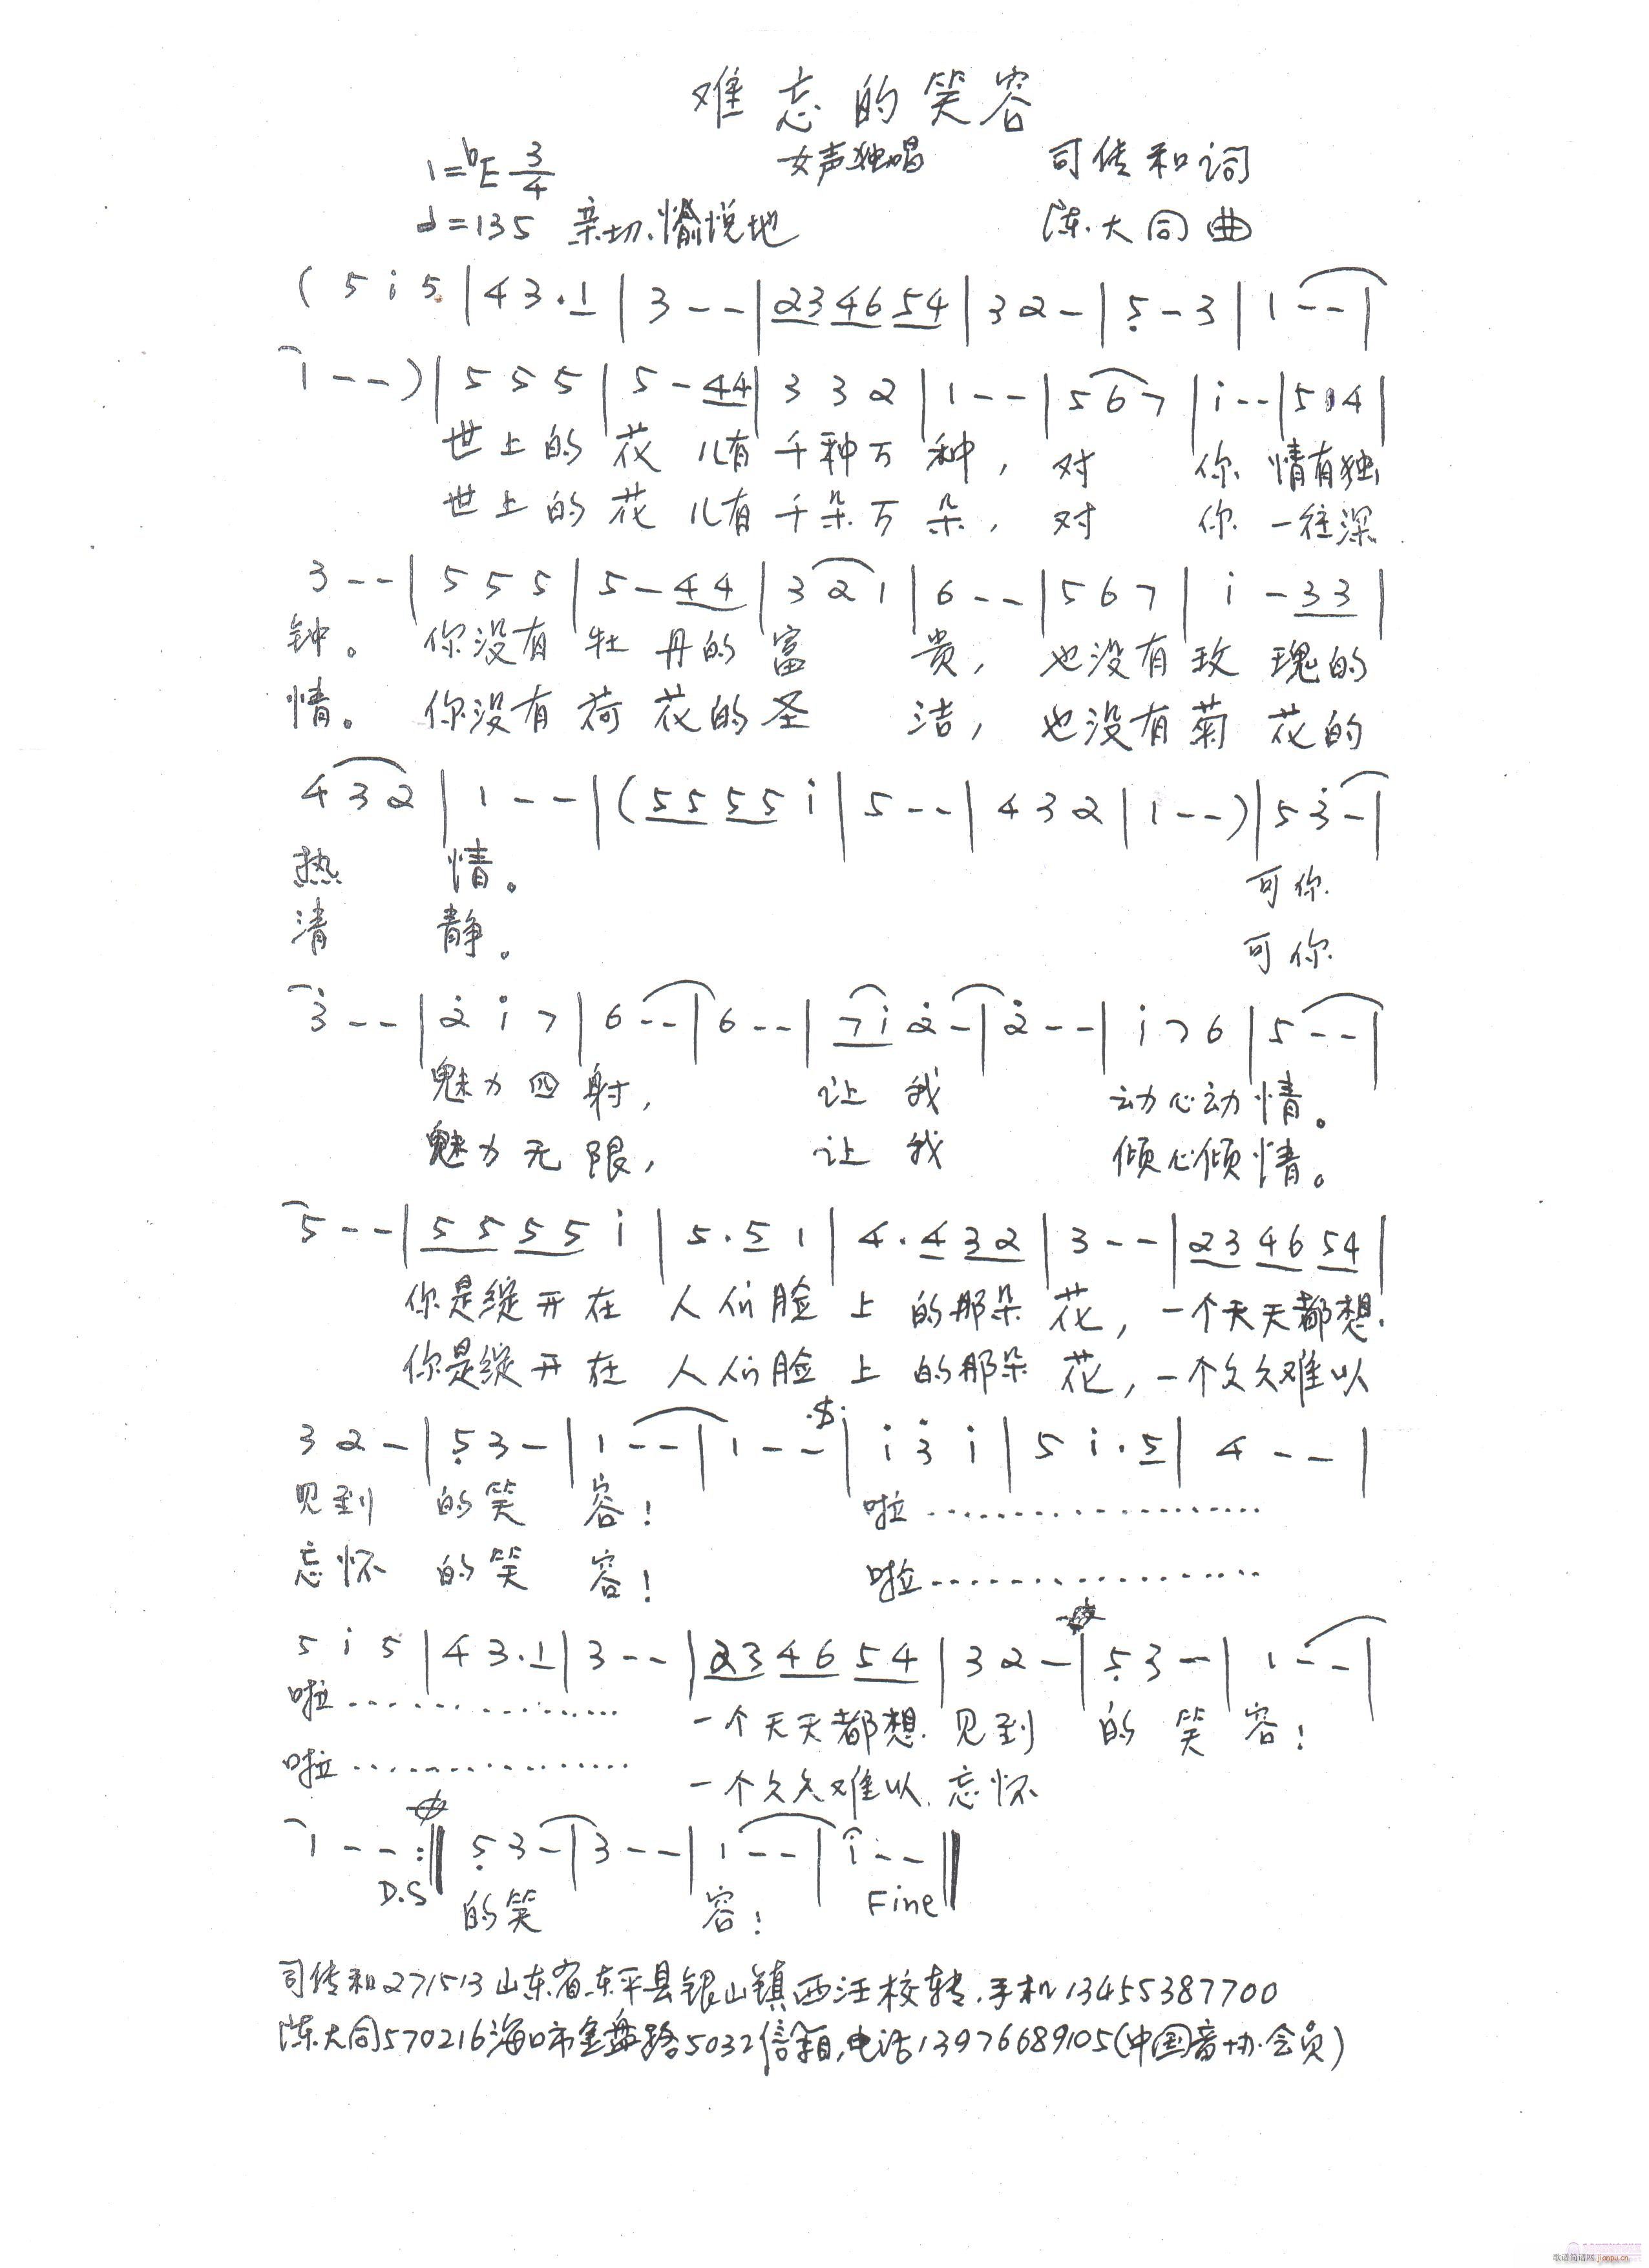 难忘的笑容
1=bE 3/4 女声独唱 司传和词
♩=135 亲切、愉悦地 陈大同曲
( 5 i 5 | 4 3 . 1 | 3 - - | 2 3 4 6 5 4 | 3 2 - | 5 - 3 | 1 - - |
1 - - ) | 5 5 5 | 5 - 4 4 | 3 3 2 | 1 - - | 5 6 7 | i - - | 5 1 4 |
世上的花儿有千种万种，对你情有独
世上的花儿有千朵万朵，对你一往深
3 - - | 5 5 5 | 5 - 4 4 | 3 2 1 | 6 - - | 5 6 7 | i - 3 3 |
钟。你没有牡丹的富贵，也没有玫瑰的
情。你没有荷花的圣洁，也没有菊花的
4 3 2 | 1 - - | ( 5 5 5 5 i | 5 - - | 4 3 2 | 1 - - ) | 5 3 - |
热情。可你
清静。可你
3 - - | 2 i 7 | 6 - - | 6 - - | 7 i 2 - | 2 - - | i 7 6 | 5 - - |
魅力四射，让我动心动情。
魅力无限，让我倾心倾情。
5 - - | 5 5 5 5 i | 5 . 5 1 | 4 . 4 3 2 | 3 - - | 2 3 4 6 5 4 |
你是绽开在人们脸上的那朵花，一个天天都想
你是绽开在人们脸上的那朵花，一个久久难以
3 2 - | 5 3 - | 1 - - | 1 - - | i 3 i | 5 i . 5 | 4 - - |
见到的笑容！啦…………………
忘怀的笑容！啦…………………
5 i 5 | 4 3 . 1 | 3 - - | 2 3 4 6 5 4 | 3 2 - | 5 3 - | 1 - - |
啦……………一个天天都想见到的笑容！
啦……………一个久久难以忘怀
1 - - :‖ 5 3 - | 3 - - | 1 - - | i - - ‖
D.S 的笑容！ Fine
司传和271513山东省东平县银山镇西汪校转.手机13455387700
陈大同570216海口市金盘路5032信箱,电话13976689105(中国音协会员)
歌谱简谱网 jianpu.cn